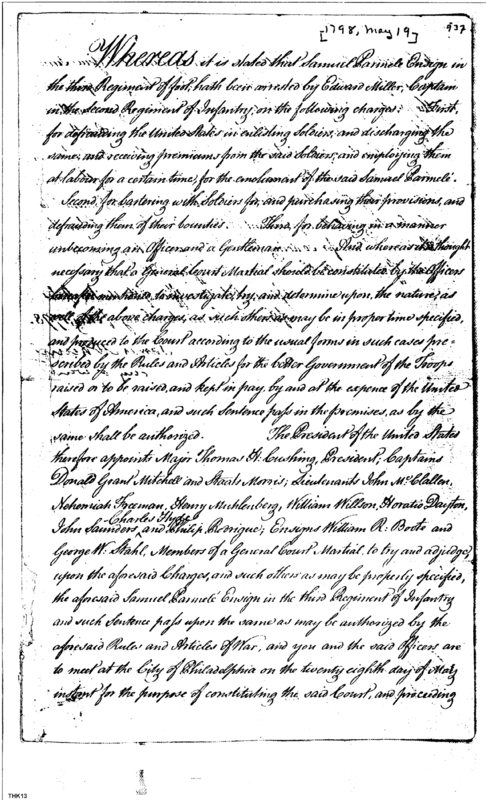 [1798, May 19]
937
Whereas it is stated that Samuel Parmele Ensign in
the third Regiment of foot, hath been arrested by Edward Miller, Captain
in the Second Regiment of Infantry, on the following charges. First,
for defrauding the United States in enlisting Soldiers, and discharging the
same, and receiving premiums from the said Soldiers, and employing them
at labour for a certain time, for the emolument of the said Samuel Parmele.
Second, for bartering with Soldiers for, and purchasing their provisions, and
defrauding them of their bounties. Third, for behaving in a manner
unbecoming an Officer and a Gentleman. And whereas it is thought
necessary that a General Court Martial should be constituted by the Officers
to investigate, try, and determine upon, the nature, as
well of the above charges, as such others as may be in proper time specified,
and produced to the Court according to the usual forms in such cases pre-
scribed by the Rules and Articles for the better Government of the Troops
raised or to be raised, and kept in pay, by and at the expence of the United
States of America, and such Sentence pass in the premises, as by the
same shall be authorized. The President of the United States
therefore appoints Major Thomas H. Cushing, President; Captains
Donald Grant Mitchell and Staats Morris; Lieutenants John McClallen,
Nehemiah Freeman, Henry Muhlenberg, William Willson, Horatio Dayton,
Charles Hyde
John Saunders, and Philip Rodrigue; Ensigns William R. Boote and
George W. Stahl, Members of a General Court Martial to try and adjudge,
upon the aforesaid Charges, and such others as may be properly specified,
the aforesaid Samuel Parmele Ensign in the third Regiment of Infantry
and such Sentence pass upon the same as may be authorized by the
aforesaid Rules and Articles of War, and you and the said Officers are
to meet at the City of Philadelphia on the twenty eighth day of May
instant for the purpose of constituting the said Court, and proceeding
THK13